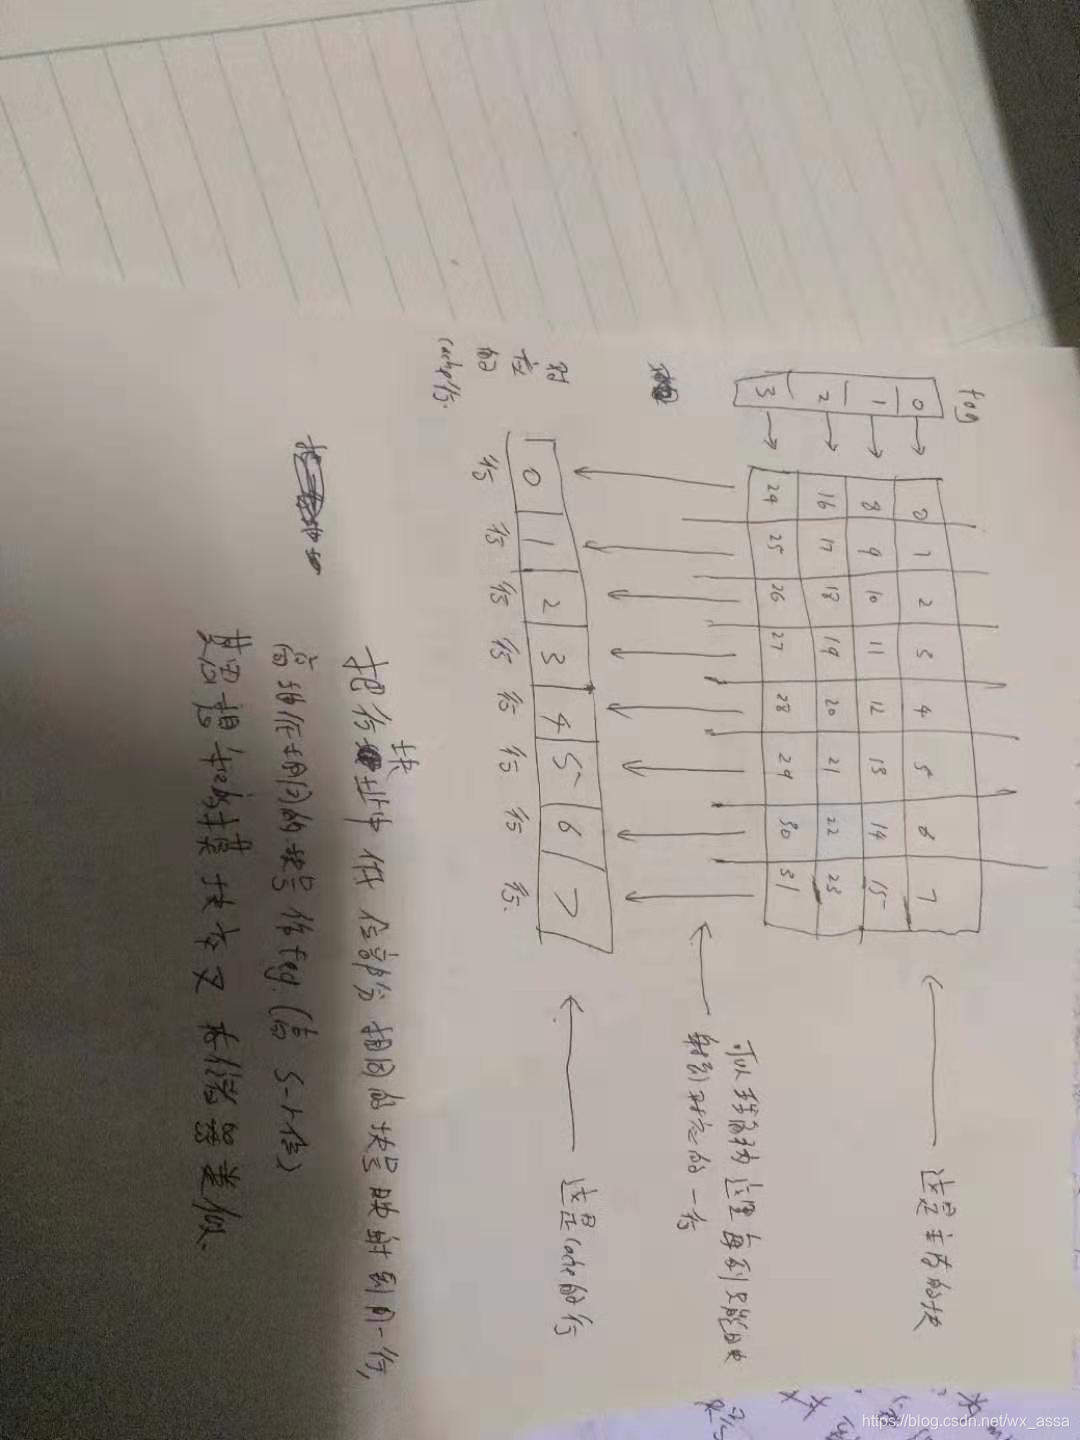 tag
0 → 0 1 2 3 4 5 6 7
1 → 8 9 10 11 12 13 14 15
2 → 16 17 18 19 20 21 22 23
3 → 24 25 26 27 28 29 30 31
这是主存的块
可以理解为这里每列只能映
射到对应的一行
0 1 2 3 4 5 6 7
这是cache的行
对应的cache行
行 行 行 行 行 行 行 行
块
把行 址中低 位部分相同的块号映射到同一行,
的块号作tag.(高 s-r位)
其思想和 模 存储器类似.
https://blog.csdn.net/wx_assa